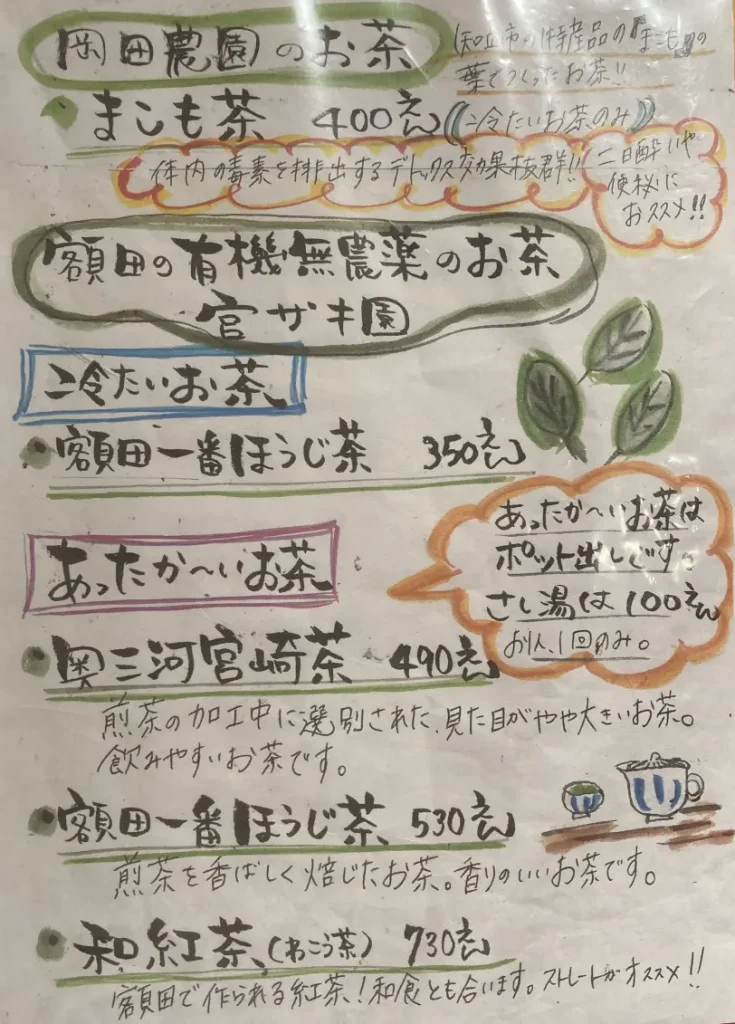 岡田農園のお茶
(知立市の特産品の『まこも』の
葉でつくったお茶!!
まこも茶 400えん((冷たいお茶のみ))
体内の毒素を排出するデトックス効果抜群!!
二日酔いや
便秘に
おススメ!!
額田の有機無農薬のお茶
宮ザキ園
冷たいお茶
額田一番ほうじ茶 350えん
あったか〜いお茶
あったか〜いお茶は
ポット出しです。
さし湯は100えん
お1人、1回のみ。
奥三河宮崎茶 490えん
煎茶の加工中に選別された、見た目がやや大きいお茶。
飲みやすいお茶です。
額田一番ほうじ茶 530えん
煎茶を香ばしく焙じたお茶。香りのいいお茶です。
和紅茶(わこう茶) 730えん
額田で作られる紅茶!和食とも合います。ストレートがオススメ!!